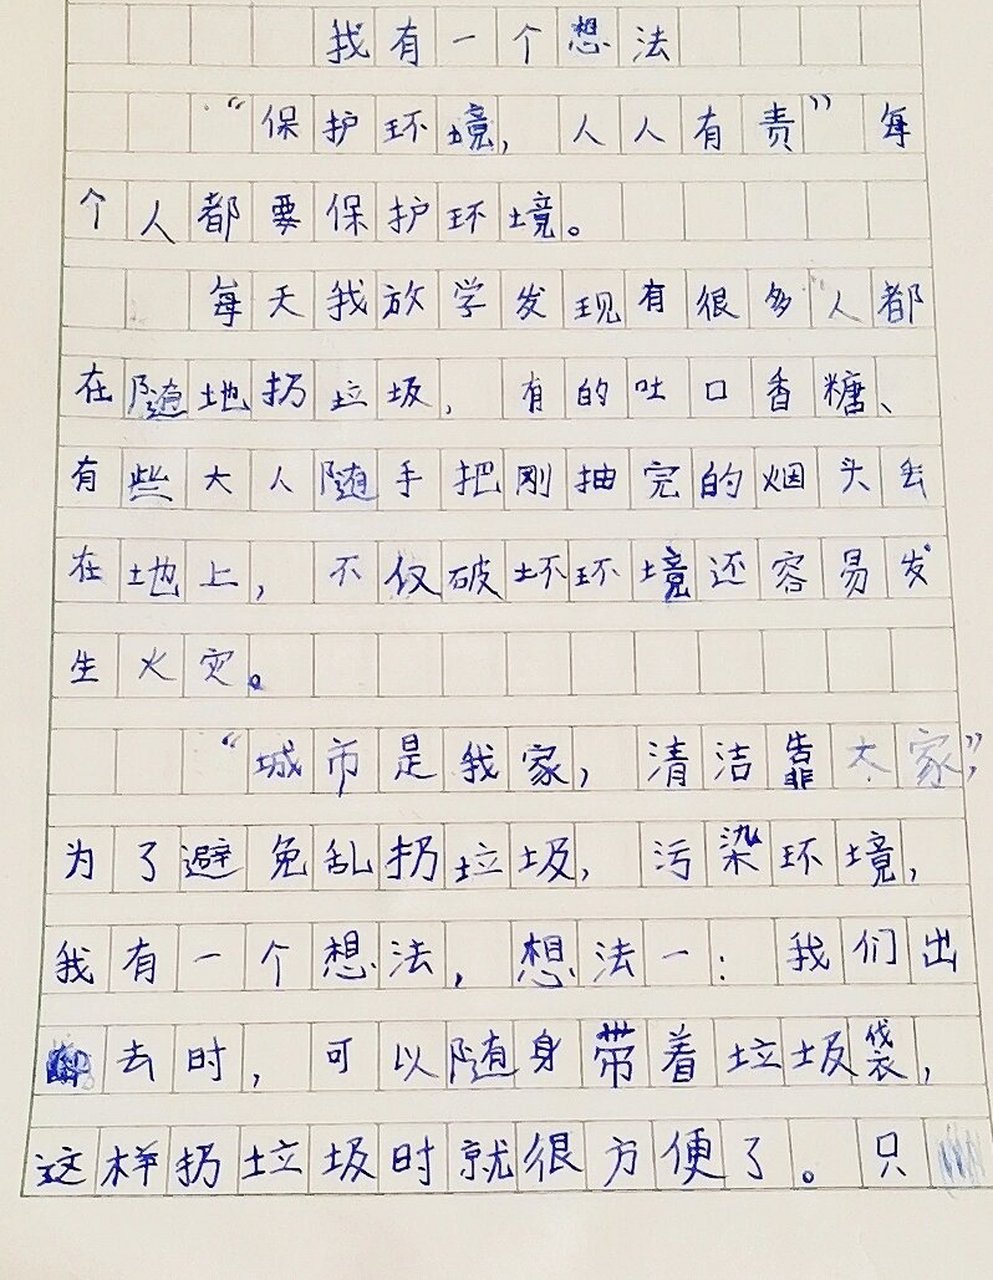 我有一个想法
“保护环境,人人有责”每
个人都要保护环境。
每天我放学发现有很多人都
在随地扔垃圾,有的吐口香糖、
有些大人随手把刚抽完的烟头丢
在地上,不仅破坏环境还容易发
生火灾。
“城市是我家,清洁靠大家”,
为了避免乱扔垃圾,污染环境,
我有一个想法,想法一:我们出
去时,可以随身带着垃圾袋,
这样扔垃圾时就很方便了。只